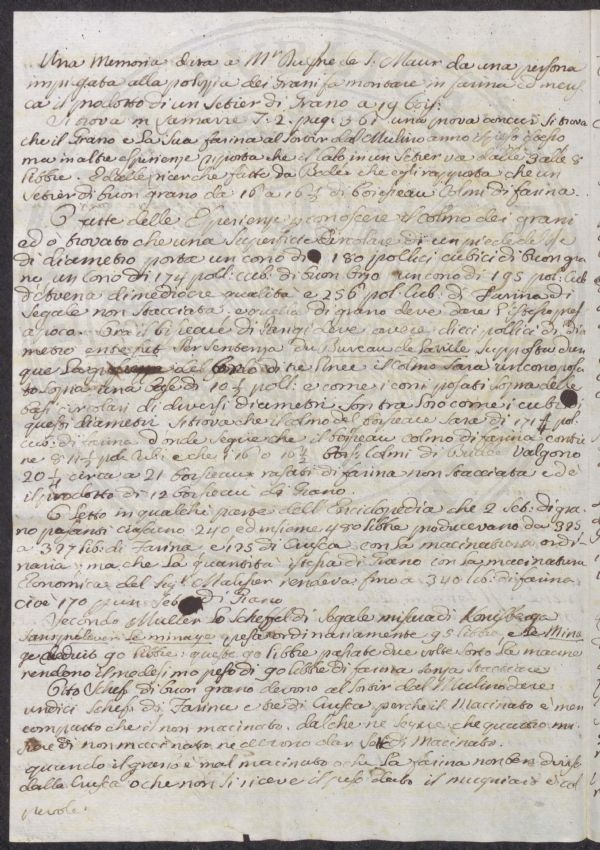 Una Memoria data a Mr Dupré de S. Maur da una persona
impiegata alla polizia dei Grani fa montare in farina ed in crus
ca il prodotto di un Setier di Grano a 19 Boiss.
Si trova in Lamarre T. 2. pag. 361 una prova con cui si trova
che il Grano e la sua farina al sortir dal Mulino anno
ma in altre esperienze riporta che il calo in un Setier va dalle 3 alle 8
libbre. E dalle ricerche fatte da che egli rapporta che un
Setier di buon grano da 16 a 16 ½ di boisseau Colmi di farina.
O fatte delle Esperienze conoscere il Colmo dei grani
ed ò trovato che una Superficie Circolare di un piede
di diametro porta un cono di 180 pollici cubici di buon gra
no un Cono di 174 poll. cub. di buon un cono di 195 pol. Cub.
d'Avena di mediocre qualità e 256 pol. Cub. di Farina di
Segale non stacciata. e quella di grano deve dare l'istesso
a poca. Ora il boiseau di Parigi deve avere dieci pollici di Dia
metro Sentenza du Bureau de la vile supposto dun
que la del di tre linee il Colmo sara un cono
to sopra una base di 10 ½ poll. e come i coni posati sopra delle
basi circolari di diversi diametri son tra loro come i cubi di
questi diametri si trova che il colmo del boisseau sara di 171 pol.
cub. di farina d'onde segue che il boiseau colmo di farina contie
ne e che i 16 o 16 ½ Boiss. Colmi di valgono
20 ½ circa a 21 boisseaux rasati di farina non stacciata ed è
il prodotto di 12 boisseau di Grano.
O letto in qualche parte dell'Enciclopedia che 2 Set. di gra
no pesanti ciascuno 240 ed insieme 480 libbre producevano da 325
a 327 lib. di Farina e 125 di Crusca con la macinatura ordi
naria, ma che la quantità istessa di Grano con la macinatura
Economica del Sigr Malisset rendeva fino a 340 lib. di farina
cioè 170 Set. di Grano
Secondo Muller lo Scheffel di Segale misura di Konisberga
pesa ordinariamente 95 libbre, e
90 libbre: queste 90 libbre passate due volte sotto la macine
rendono il medesimo peso di 90 libbre di farina senza stacciare
Otto Schef. di buon grano devono al sortir dal Mulino dare
undici Schef. di Farina e tre di Crusca perche il Macinato è men
compatto che il non macinato. dal che ne segue che quattro mi
sure di non macinato ne devono dar Sette di Macinato.
quando il grano è mal macinato o che la farina non ben divisa
dalla Crusca o che non si riceve il peso dato il mugniaio è col
pevole.